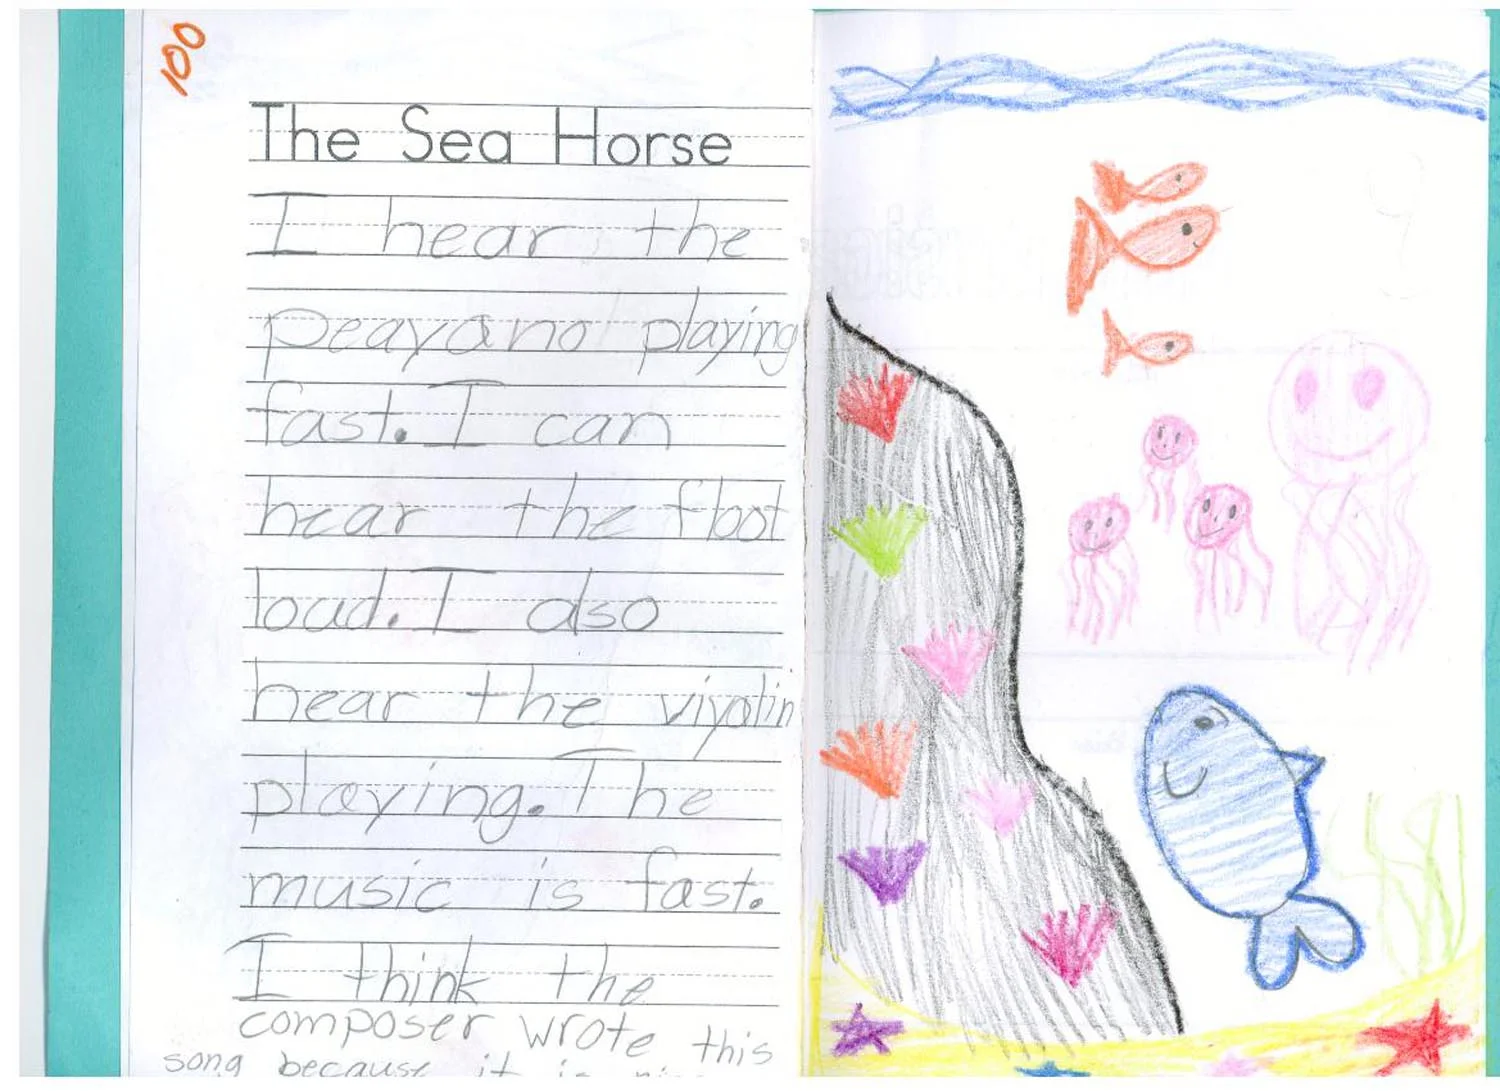 100
The Sea Horse
I hear the
peayano playing
fast. I can
hear the floot
loud. I also
hear the viyolin
playing. The
music is fast.
I think the
composer wrote this
song because it is